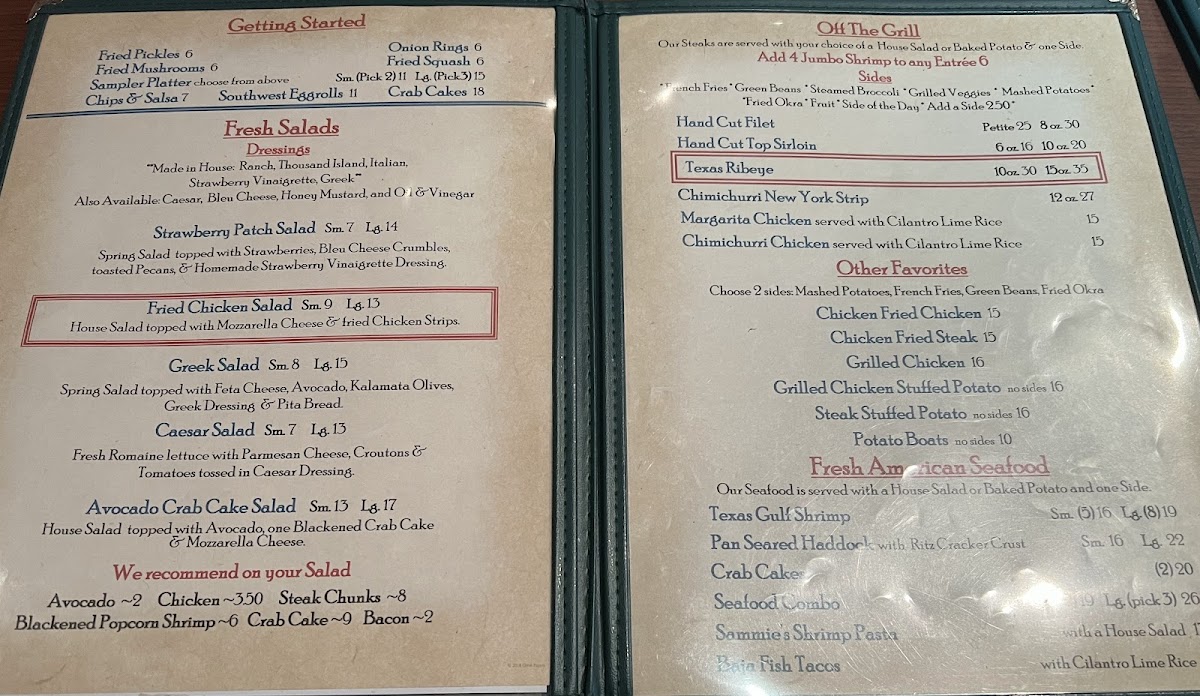 Getting Started
Fried Pickles 6
Onion Rings 6
Fried Mushrooms 6
Fried Squash 6
Sampler Platter choose from above Sm. (Pick 2) 11 Lg. (Pick 3) 15
Chips & Salsa 7 Southwest Eggrolls 11 Crab Cakes 18
Fresh Salads
Dressings
"Made in House: Ranch, Thousand Island, Italian,
Strawberry Vinaigrette, Greek"
Also Available: Caesar, Bleu Cheese, Honey Mustard, and Oil & Vinegar
Strawberry Patch Salad Sm. 7 Lg. 14
Spring Salad topped with Strawberries, Bleu Cheese Crumbles,
toasted Pecans, & Homemade Strawberry Vinaigrette Dressing.
Fried Chicken Salad Sm. 9 Lg. 13
House Salad topped with Mozzarella Cheese & fried Chicken Strips.
Greek Salad Sm. 8 Lg. 15
Spring Salad topped with Feta Cheese, Avocado, Kalamata Olives,
Greek Dressing & Pita Bread.
Caesar Salad Sm. 7 Lg. 13
Fresh Romaine lettuce with Parmesan Cheese, Croutons &
Tomatoes tossed in Caesar Dressing.
Avocado Crab Cake Salad Sm. 13 Lg. 17
House Salad topped with Avocado, one Blackened Crab Cake
& Mozzarella Cheese.
We recommend on your Salad
Avocado ~2 Chicken ~3.50 Steak Chunks ~8
Blackened Popcorn Shrimp ~6 Crab Cake ~9 Bacon ~2
Off The Grill
Our Steaks are served with your choice of a House Salad or Baked Potato & one Side.
Add 4 Jumbo Shrimp to any Entrée 6
Sides
*French Fries * Green Beans * Steamed Broccoli * Grilled Veggies * Mashed Potatoes *
*Fried Okra * Fruit * Side of the Day * Add a Side 2.50*
Hand Cut Filet Petite 25 8 oz. 30
Hand Cut Top Sirloin 6 oz. 16 10 oz. 20
Texas Ribeye 10oz. 30 15oz. 35
Chimichurri New York Strip 12 oz. 27
Margarita Chicken served with Cilantro Lime Rice 15
Chimichurri Chicken served with Cilantro Lime Rice 15
Other Favorites
Choose 2 sides: Mashed Potatoes, French Fries, Green Beans, Fried Okra
Chicken Fried Chicken 15
Chicken Fried Steak 15
Grilled Chicken 16
Grilled Chicken Stuffed Potato no sides 16
Steak Stuffed Potato no sides 16
Potato Boats no sides 10
Fresh American Seafood
Our Seafood is served with a House Salad or Baked Potato and one Side.
Texas Gulf Shrimp Sm. (5) 16 Lg. (8) 19
Pan Seared Haddock with Ritz Cracker Crust Sm. 16 Lg. 22
Crab Cakes (2) 20
Seafood Combo Lg. (pick 3) 26
Sammie's Shrimp Pasta with a House Salad
Baja Fish Tacos with Cilantro Lime Rice